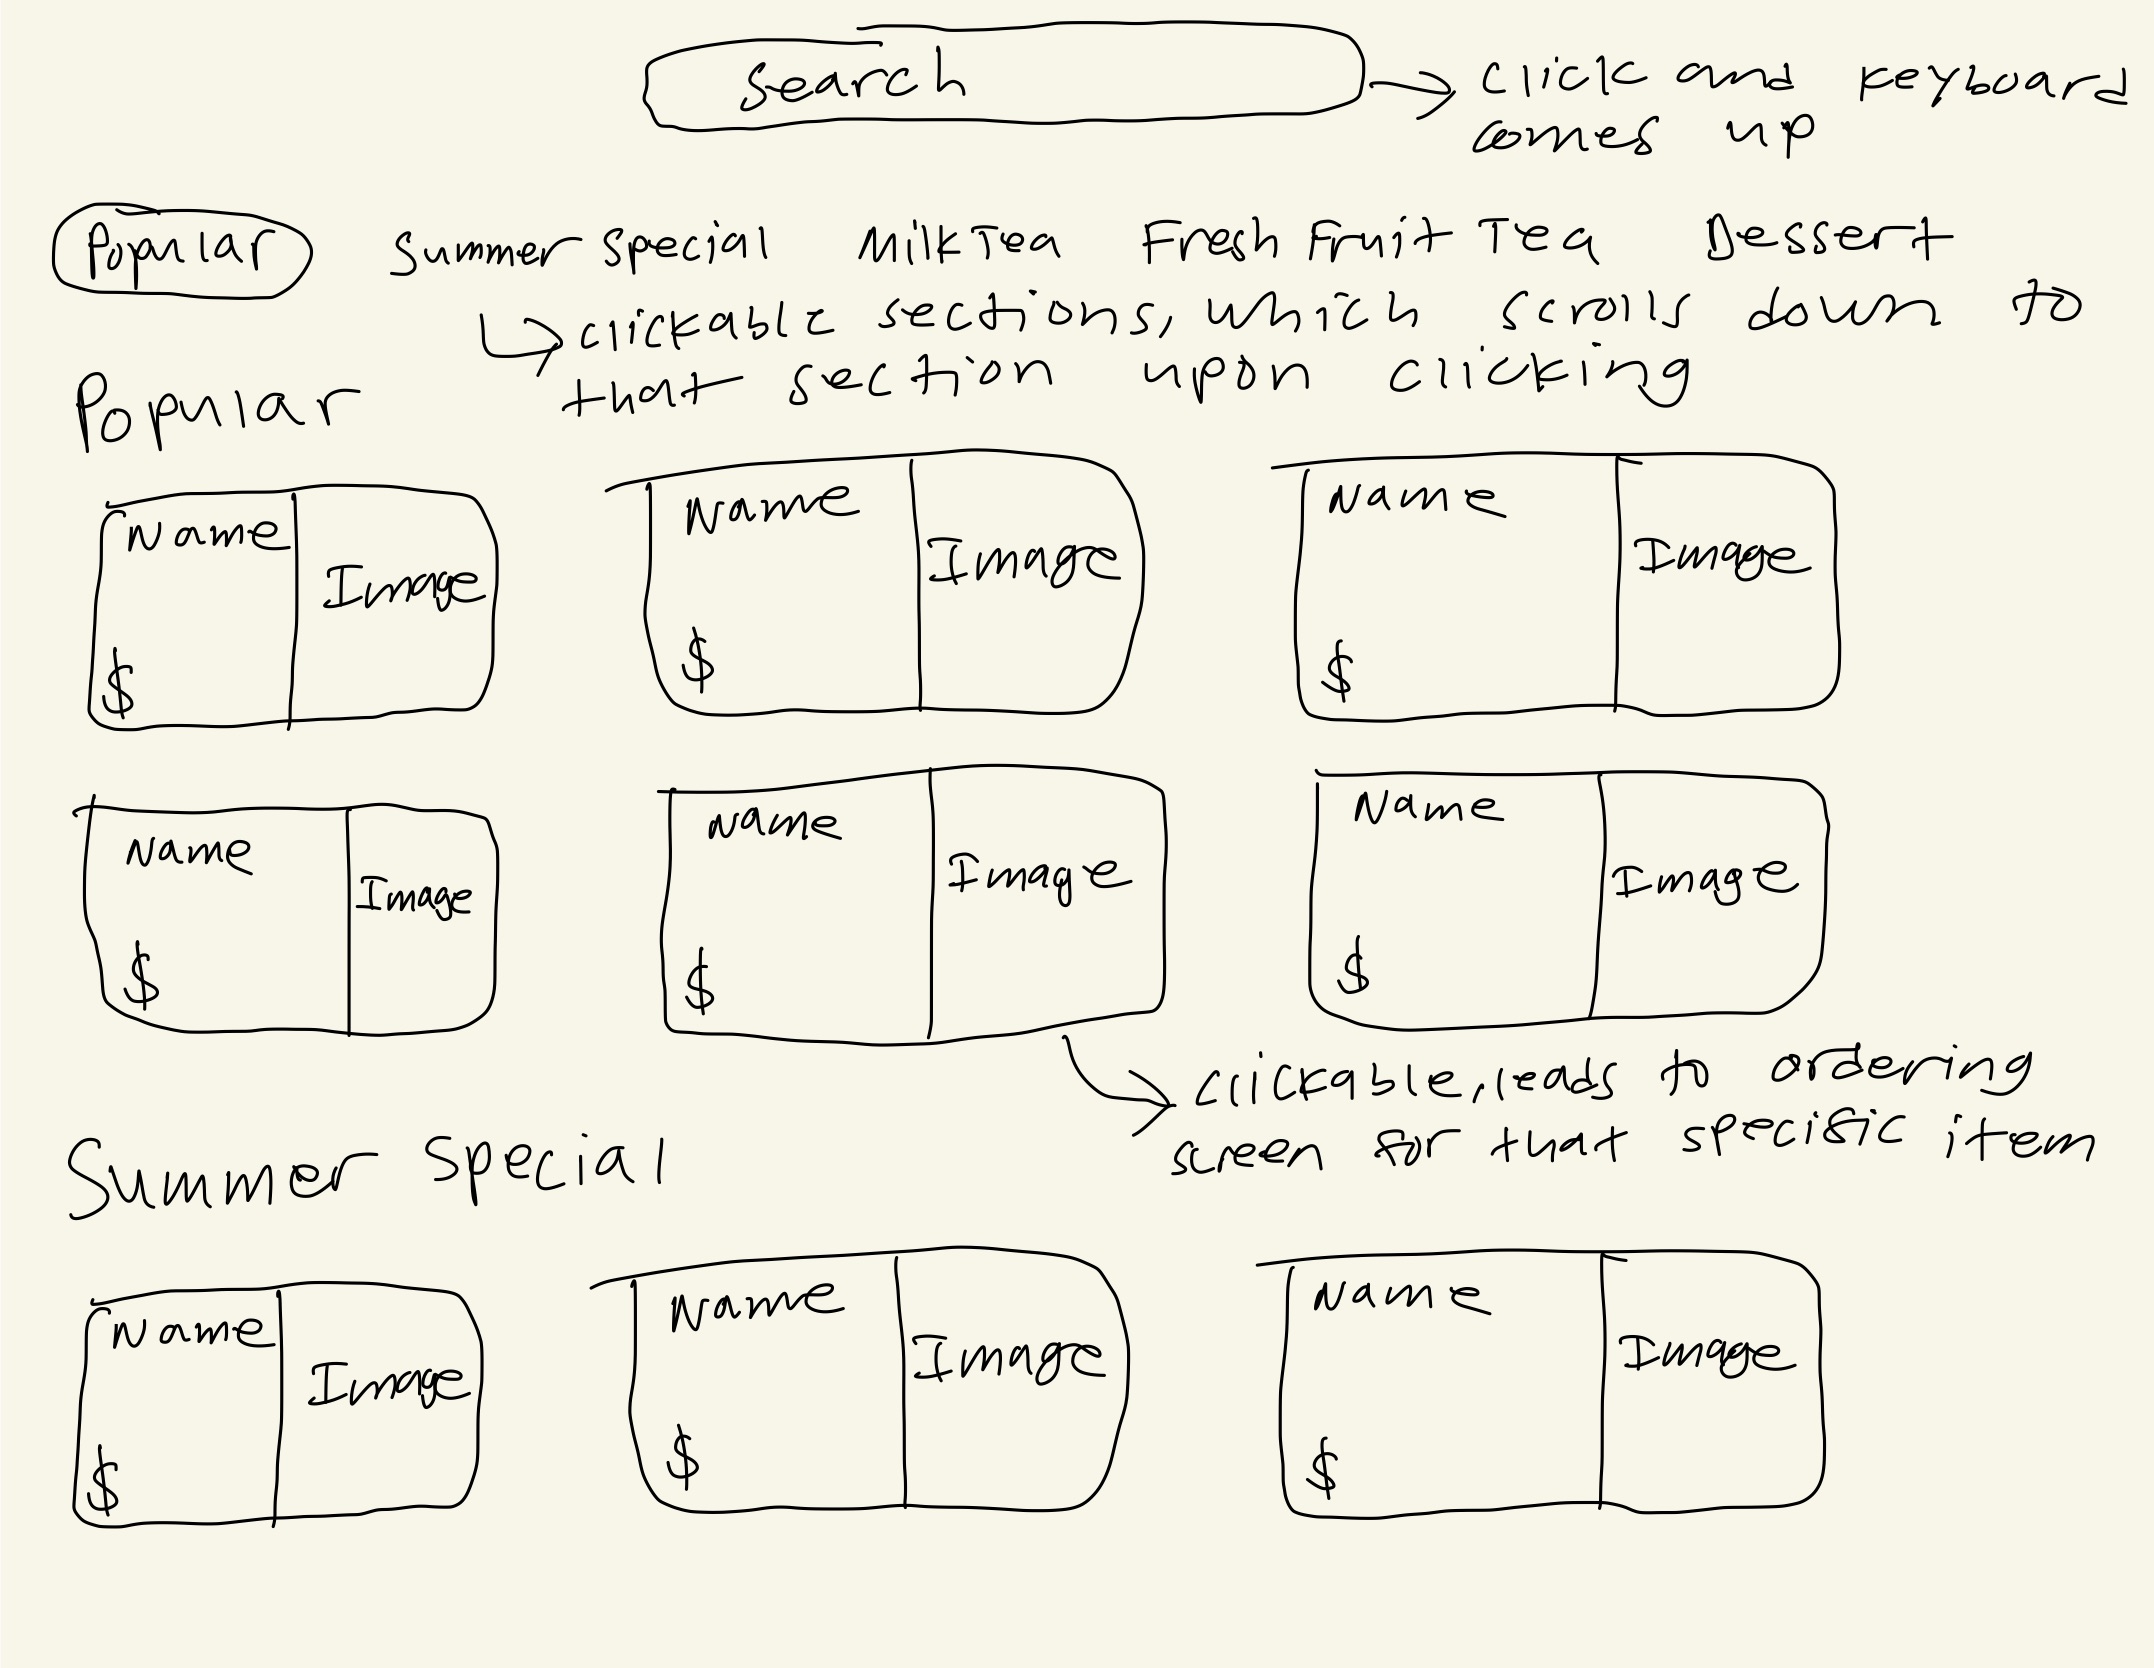 Search
click and keyboard
comes up
Popular Summer Special Milk Tea Fresh Fruit Tea Dessert
clickable sections, which scrolls down to
that section upon clicking
Popular
Name Image Name Image Name Image
$ $ $
Name Image Name Image Name Image
$ $ $
clickable, leads to ordering
screen for that specific item
Summer Special
Name Image Name Image Name Image
$ $ $